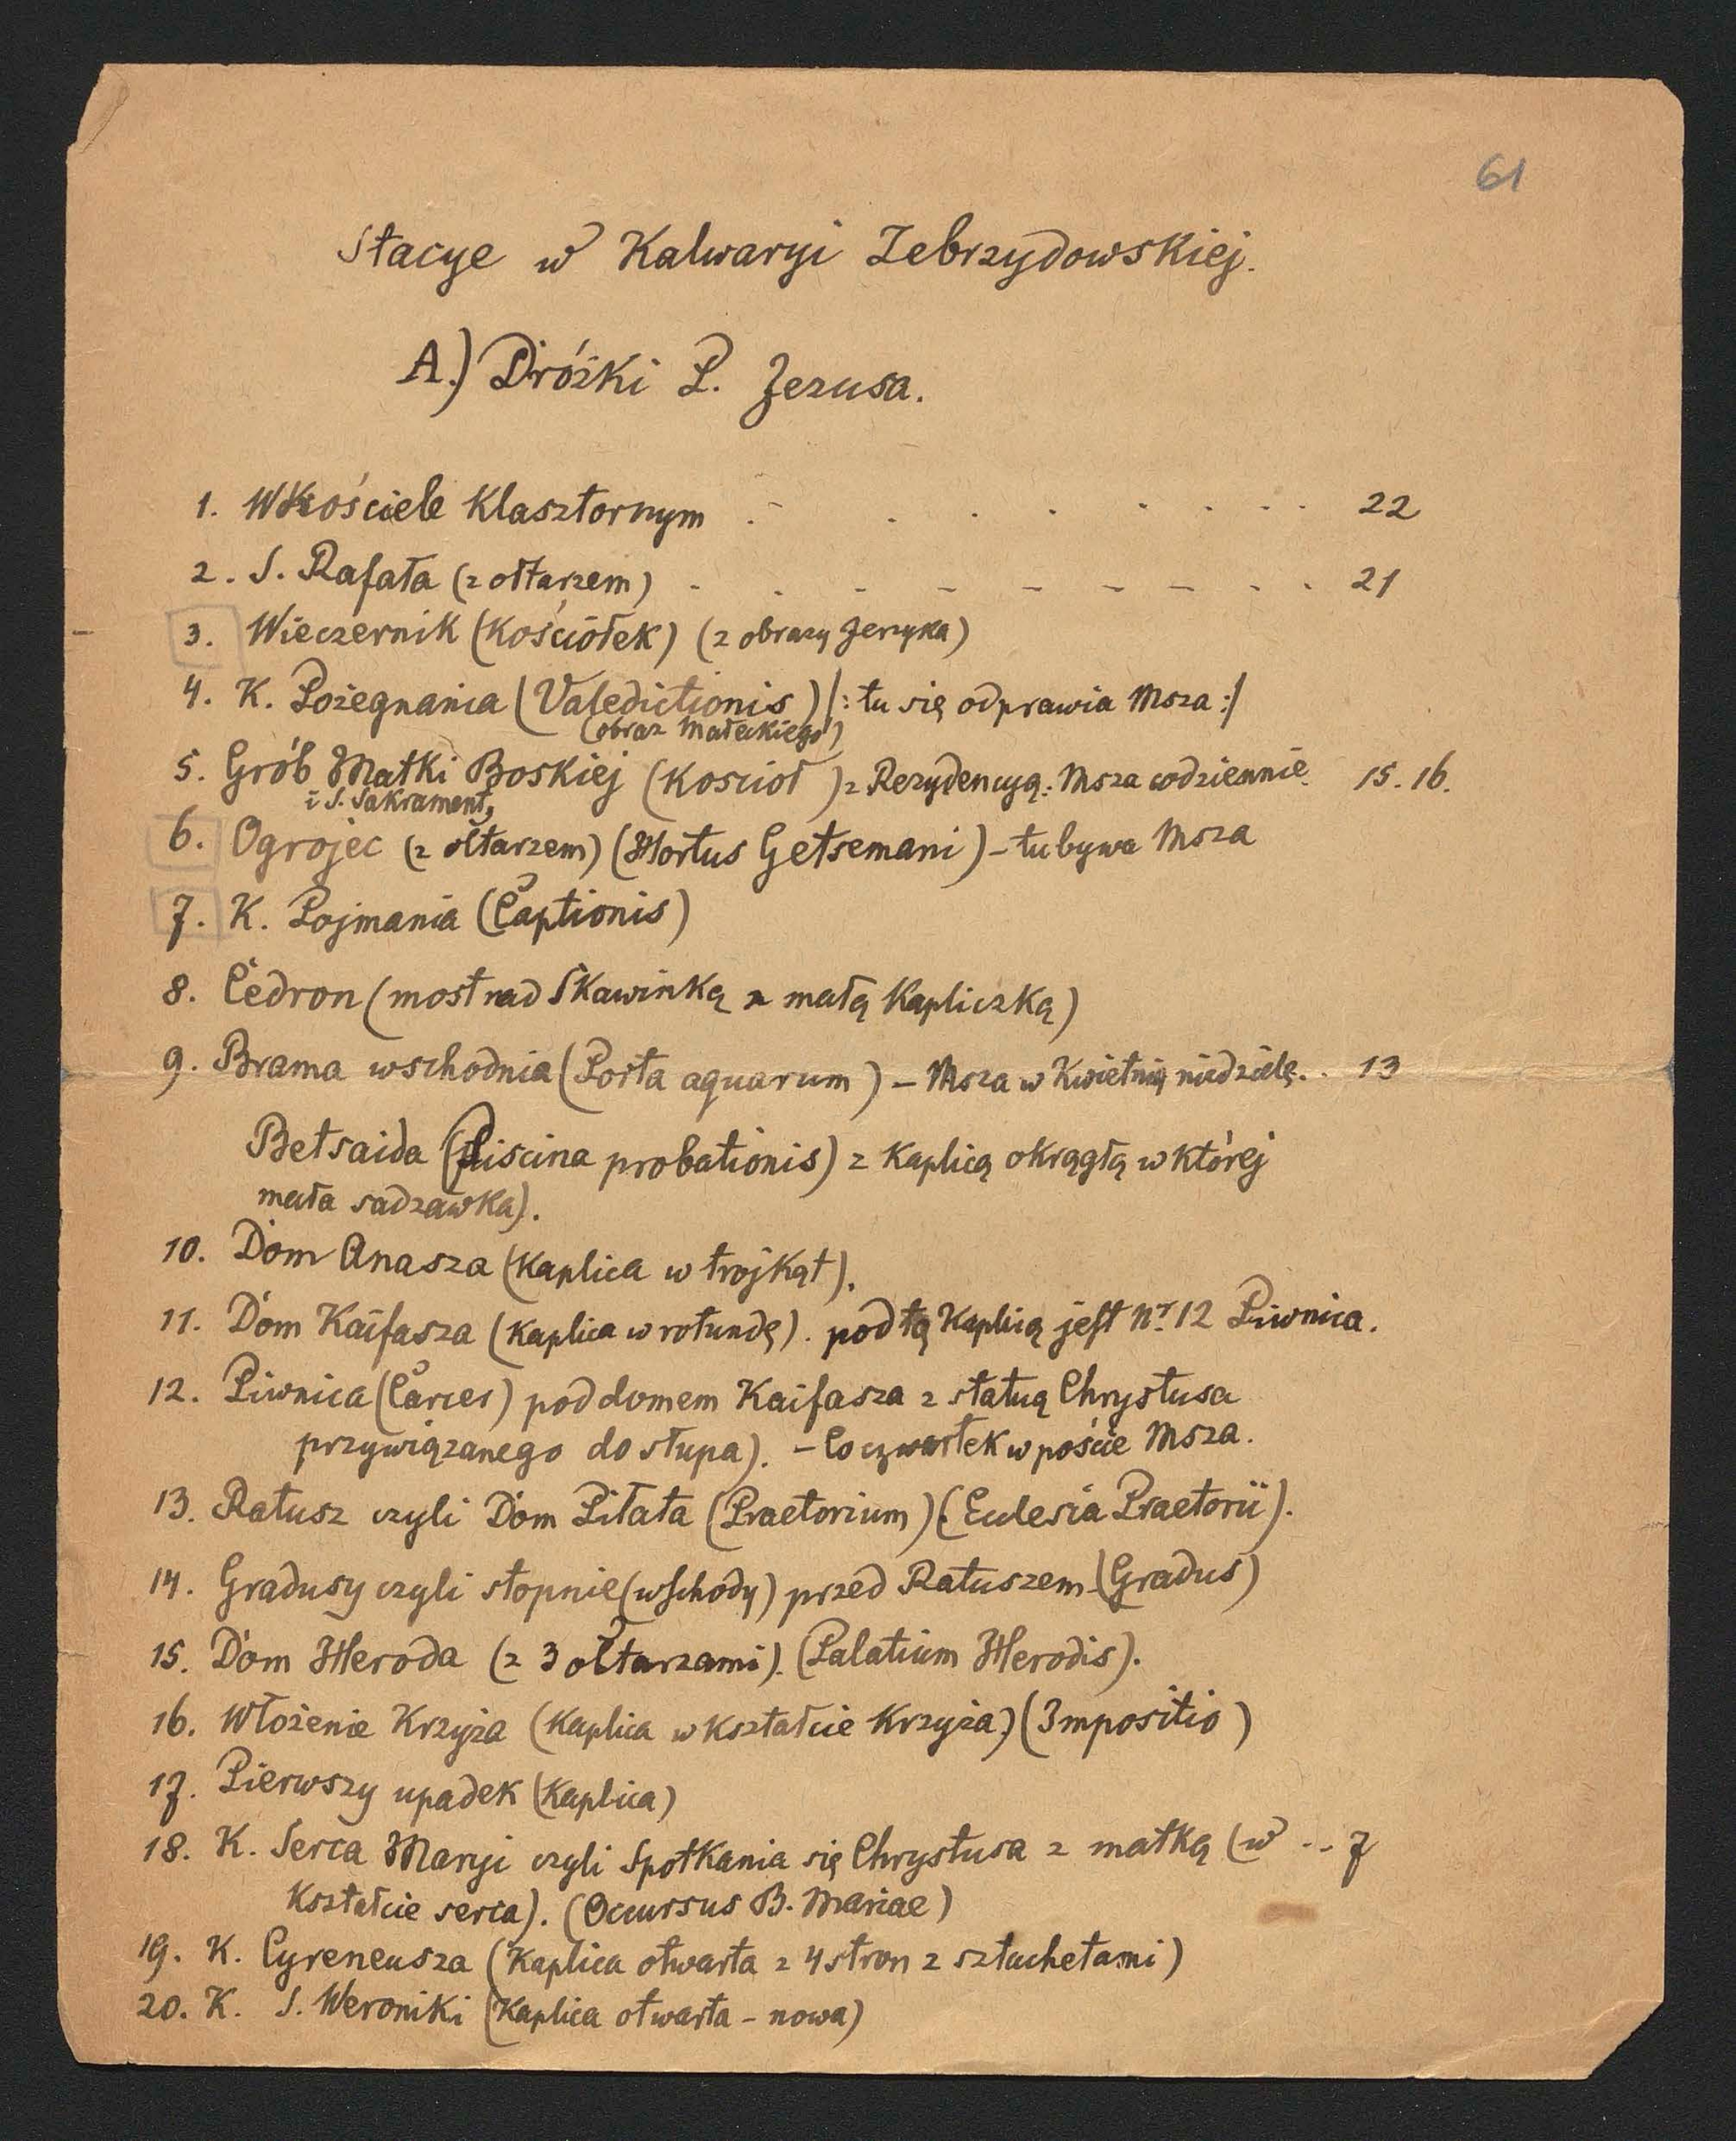 61
Stacye w Kalwaryi Zebrzydowskiej.
A.) Dróżki P. Jezusa.
1. W Kościele Klasztornym . - . . . . . . . 22
2. S. Rafała (z ołtarzem) - . - - - - - . . 21
3. Wieczernik (Kościółek) (z obrazy Jerzyka)
4. K. Pożegnania (Valedictionis) /: tu się odprawia Msza :/
(obraz Małeckiego)
5. Grób Matki Boskiej (Kościoł) z Rezydencyą. Msza codziennie. 15. 16.
i S. Sakrament,
6. Ogrojec (z ołtarzem) (Hortus Getsemani) - tu bywa Msza
7. K. Pojmania (Captionis)
8. Cedron (most nad Skawinką z małą Kapliczką)
9. Brama wschodnia (Porta aquarum) - Msza w Kwietnią niedzielę. . 13
Betsaida (Piscina probationis) z Kaplicą okrągłą w której
mała sadzawka).
10. Dom Anasza (Kaplica w trojkąt).
11. Dom Kaifasza (Kaplica w rotundę). pod tą Kaplicą jest Nr. 12 Piwnica.
12. Piwnica (Carcer) pod domem Kaifasza z statuą Chrystusa
przywiązanego do słupa). - Co czwartek w poście Msza.
13. Ratusz czyli Dom Piłata (Praetorium) (Ecclesia Praetorii).
14. Gradusy czyli stopnie (wschody) przed Ratuszem (Gradus)
15. Dom Heroda (z 3 ołtarzami). (Palatium Herodis).
16. Włożenie Krzyża (Kaplica w Kształcie Krzyża) (Impositio)
17. Pierwszy upadek (Kaplica)
18. K. Serca Maryi czyli Spotkania się Chrystusa z matką (w .. 7
Kształcie serca). (Occursus B. Mariae)
19. K. Cyreneusza (Kaplica otwarta z 4 stron z sztachetami)
20. K. S. Weroniki (Kaplica otwarta - nowa)